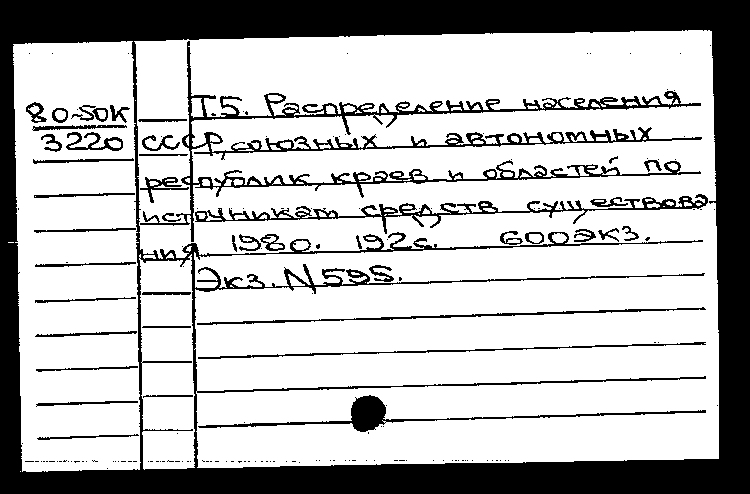 80-50К
3220
Т.5. Распределение населения
СССР, союзных и автономных
республик, краев и областей по
источникам средств существова-
ния 1980. 192с. 600экз.
Экз. N 595.